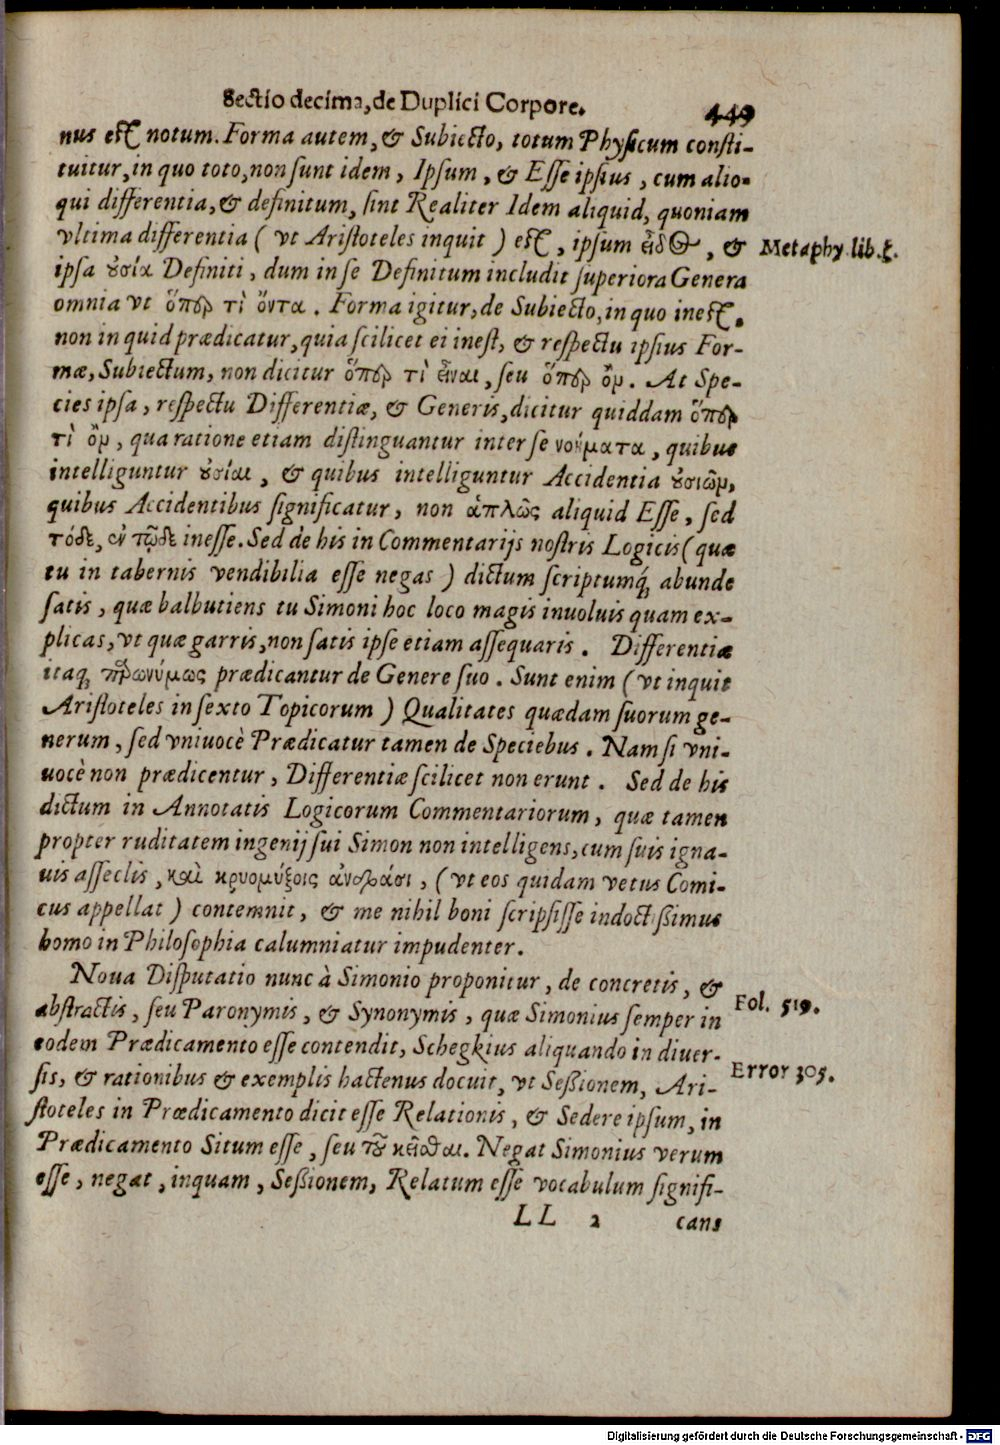 Sectio decima, de Duplici Corpore. 449
nus est notum. Forma autem, & Subiecto, totum Physicum consti-
tuitur, in quo toto, non sunt idem, Ipsum, & Esse ipsius, cum alio-
qui differentia, & definitum, sint Realiter Idem aliquid, quoniam
vltima differentia ( vt Aristoteles inquit ) est, ipsum εἶδος, & Metaphy. lib. ζ.
ipsa ȣσία Definiti, dum in se Definitum includit superiora Genera
omnia vt ὅπερ τὶ ὄντα. Forma igitur, de Subiecto, in quo inest,
non in quid prædicatur, quia scilicet ei inest, & respectu ipsius For-
mæ, Subiectum, non dicitur ὅπερ τὶ εἶναι, seu ὅπερ ὄν. At Spe-
cies ipsa, respectu Differentiæ, & Generis, dicitur quiddam ὅπερ
τὶ ὄν, qua ratione etiam distinguantur inter se νοήματα, quibus
intelliguntur ȣσίαι, & quibus intelliguntur Accidentia ȣσιῶν,
quibus Accidentibus significatur, non ἁπλῶς aliquid Esse, sed
τόδε, ἐν τῷδε inesse. Sed de his in Commentarijs nostris Logicis (quæ
tu in tabernis vendibilia esse negas ) dictum scriptumq́; abunde
satis, quæ balbutiens tu Simoni hoc loco magis inuoluis quam ex-
plicas, vt quæ garris, non satis ipse etiam assequaris. Differentiæ
itaq; παρωνύμως prædicantur de Genere suo. Sunt enim ( vt inquit
Aristoteles in sexto Topicorum ) Qualitates quædam suorum ge-
nerum, sed vniuocè Prædicatur tamen de Speciebus. Nam si vni-
uocè non prædicentur, Differentiæ scilicet non erunt. Sed de his
dictum in Annotatis Logicorum Commentariorum, quæ tamen
propter ruditatem ingenij sui Simon non intelligens, cum suis igna-
uis asseclis, καὶ κρυομύξοις ἀνδράσι, ( vt eos quidam vetus Comi-
cus appellat ) contemnit, & me nihil boni scripsisse indoctissimus
homo in Philosophia calumniatur impudenter.
Noua Disputatio nunc à Simonio proponitur, de concretis, &
abstractis, seu Paronymis, & Synonymis, quæ Simonius semper in Fol. 519.
eodem Prædicamento esse contendit, Schegkius aliquando in diuer-
sis, & rationibus & exemplis hactenus docuit, vt Sessionem, Ari- Error 305.
stoteles in Prædicamento dicit esse Relationis, & Sedere ipsum, in
Prædicamento Situm esse, seu τοῦ κεῖσθαι. Negat Simonius verum
esse, negat, inquam, Sessionem, Relatum esse vocabulum signifi-
LL 2 cans
Digitalisierung gefördert durch die Deutsche Forschungsgemeinschaft - DFG